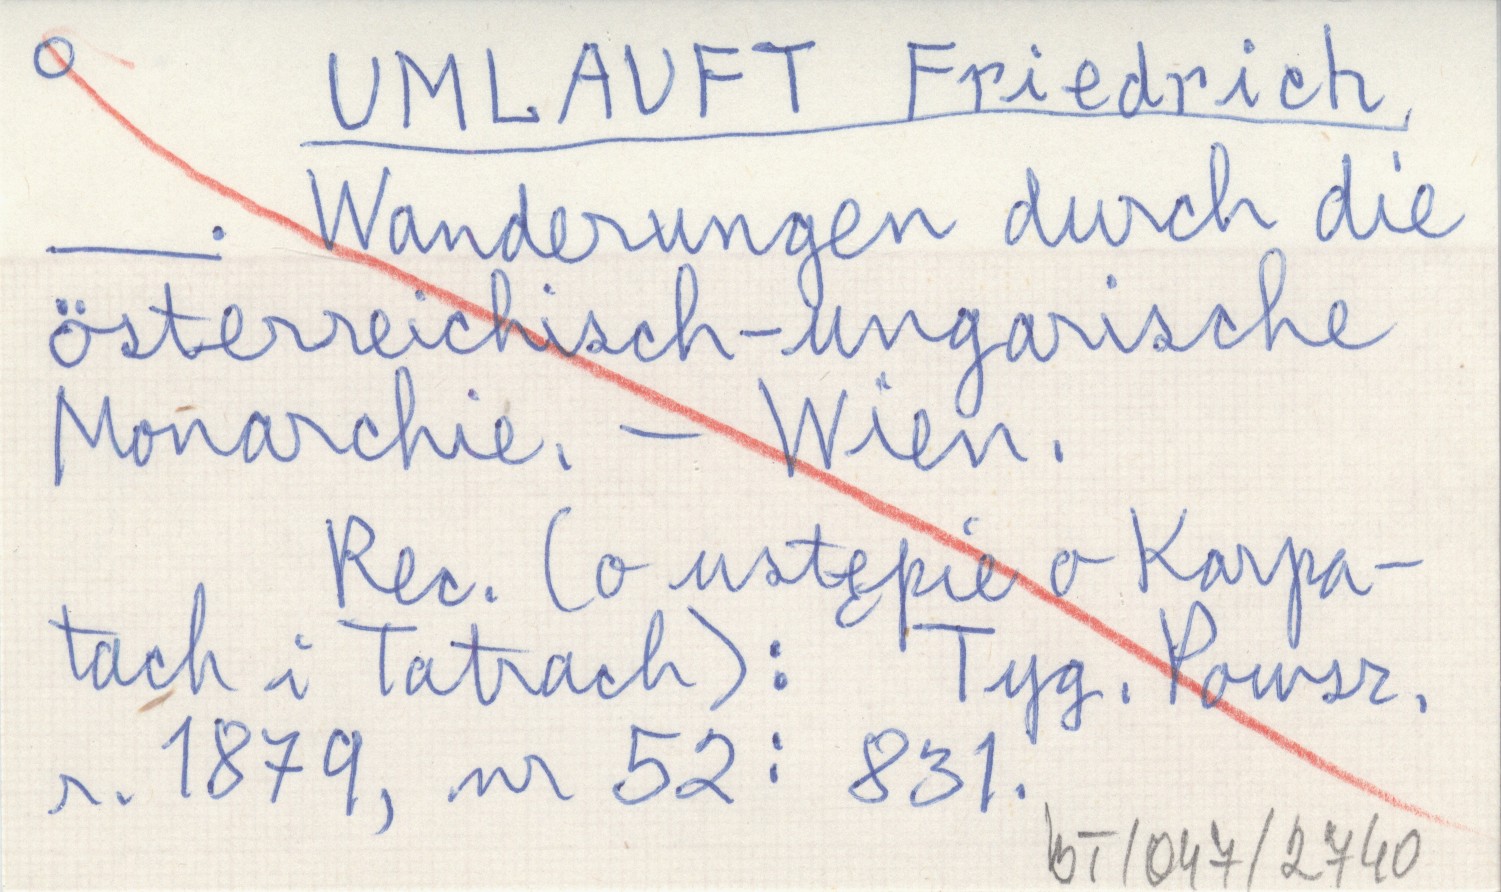 UMLAUFT Friedrich,
——. Wanderungen durch die
österreichisch-ungarische
Monarchie. — Wien.
Rec. (o ustępie o Karpa-
tach i Tatrach): Tyg. Powsz.
r. 1879, nr 52: 831.
BT/047/2740